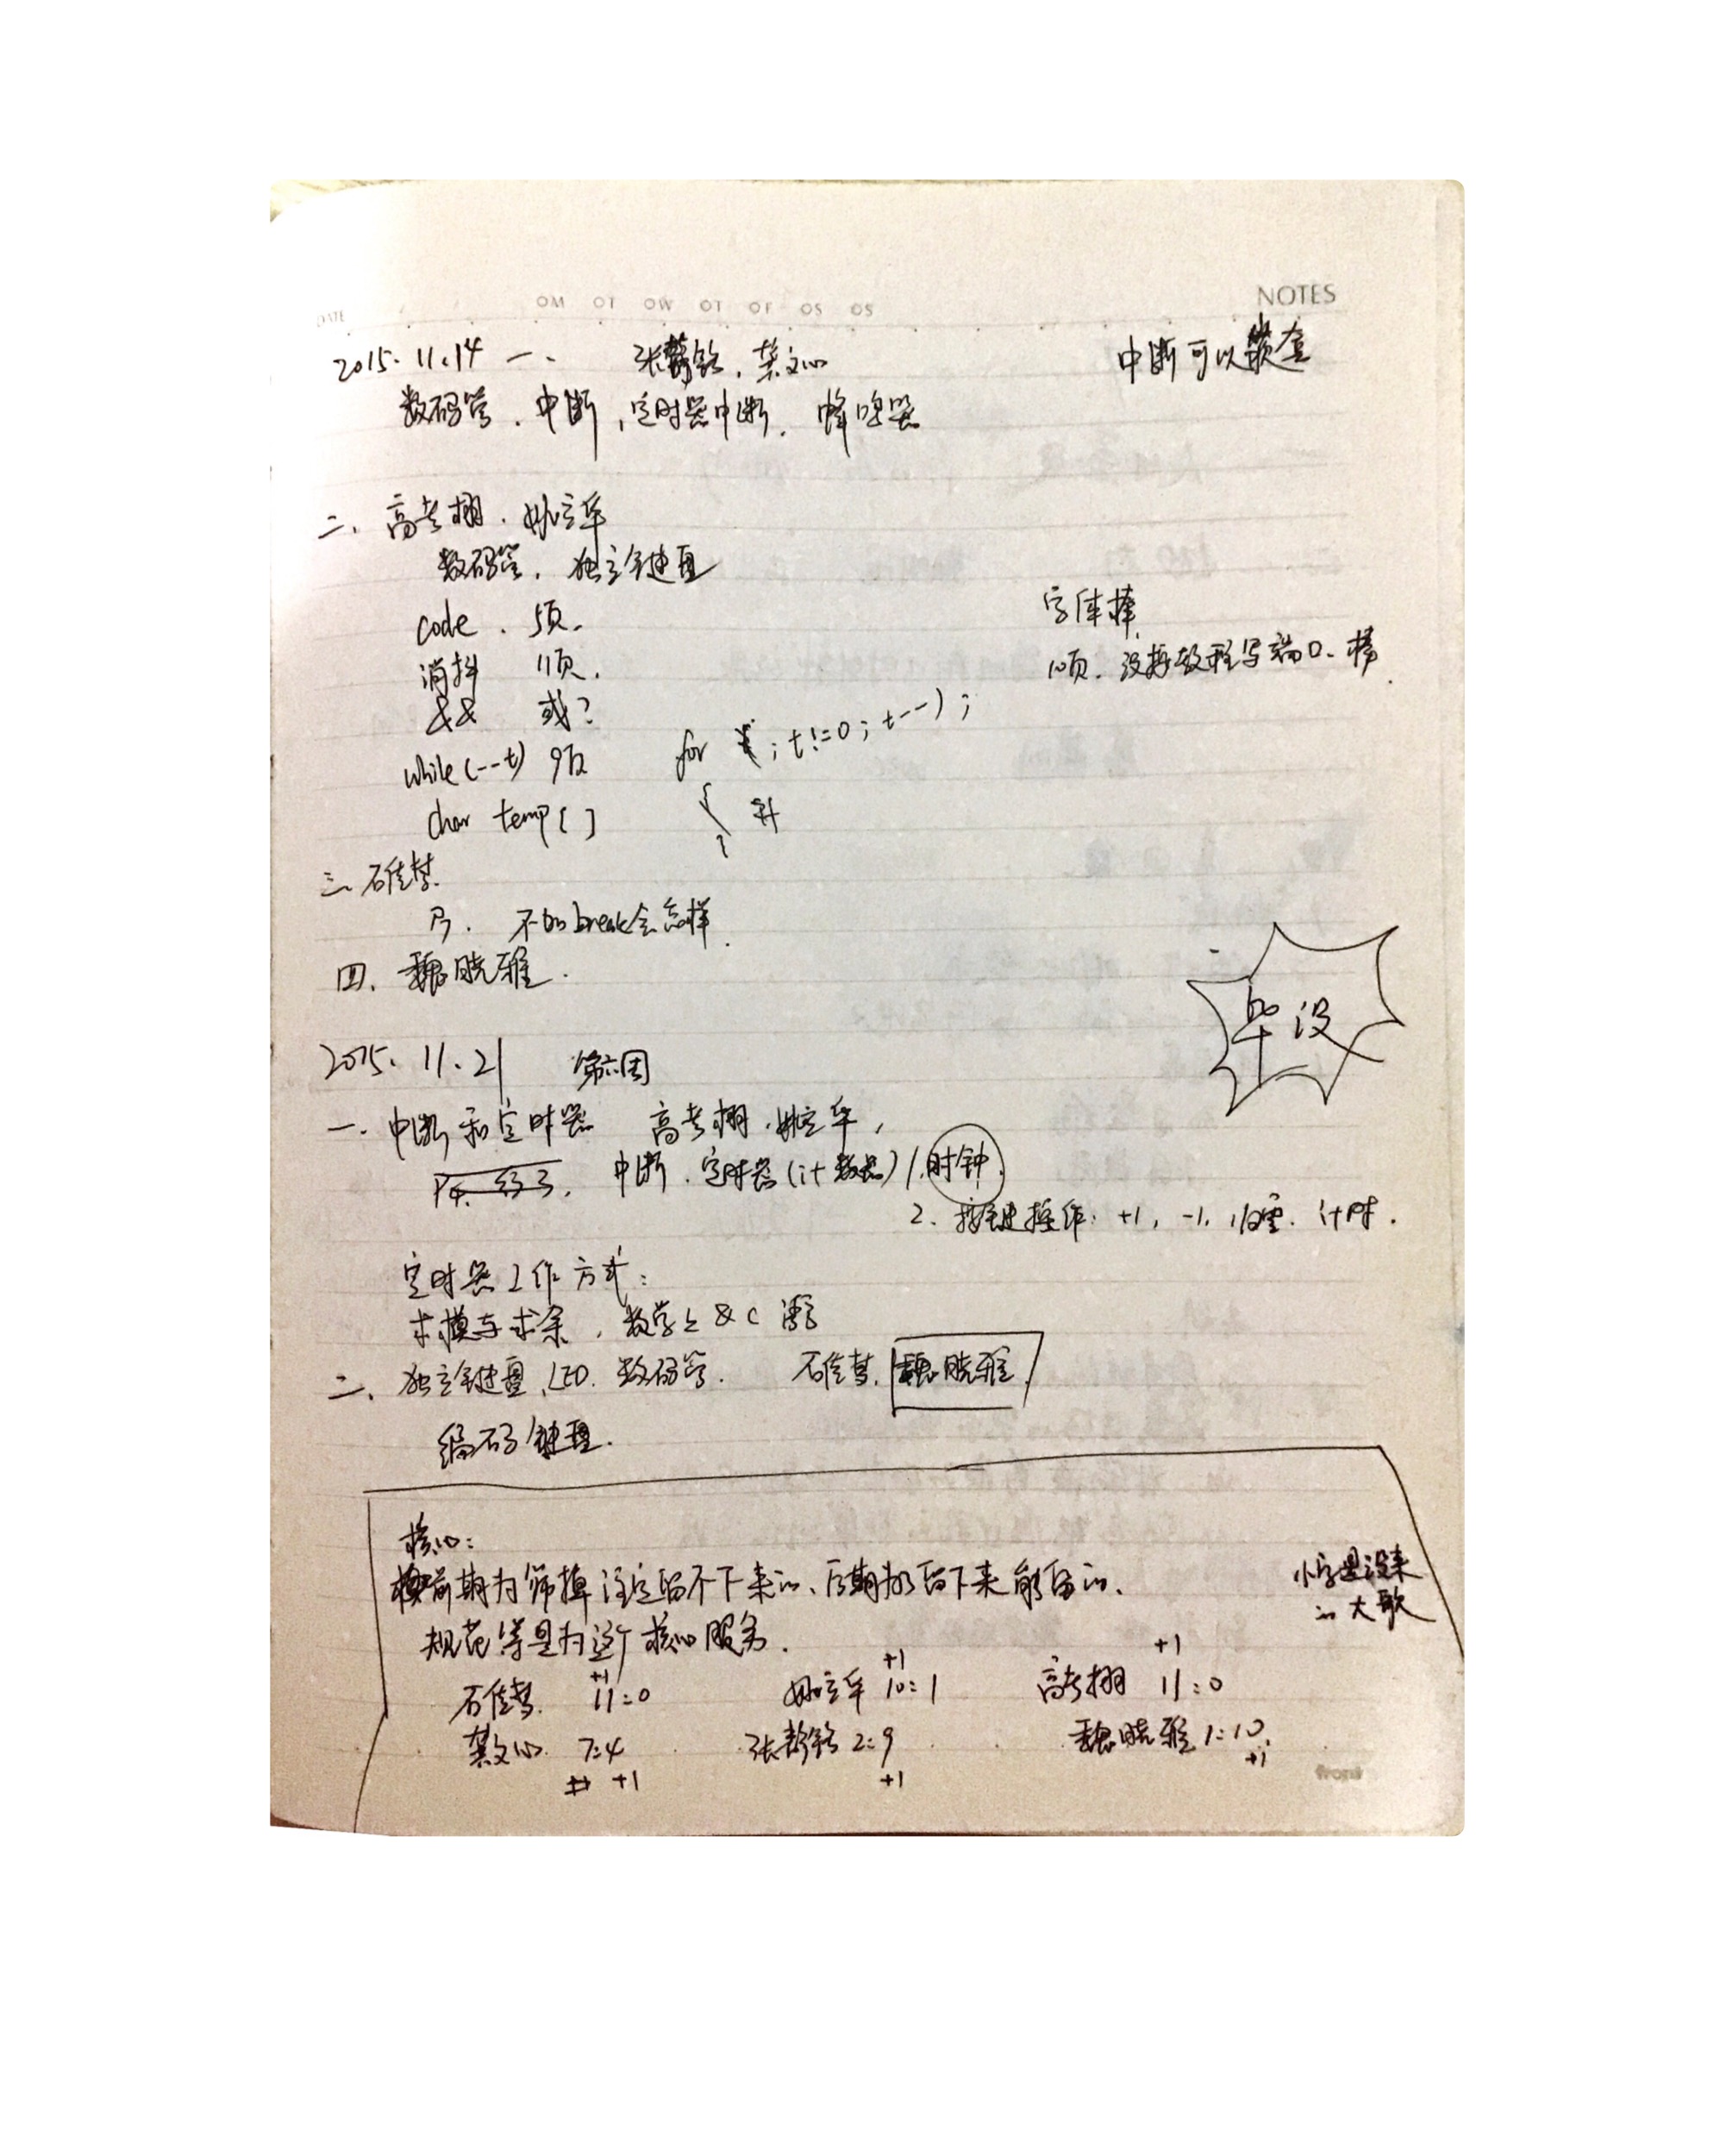 NOTES
DATE OM OT OW OT OF OS OS
2015.11.14 一、 张 中断可以嵌套
数码管、中断、定时器中断、蜂鸣器
二、高孝栩、姚立车
数码管、独立键盘
code、5页、 字体棒
消抖 11页、 10页、没按教程写端口、棒
&& 或?
while(--t) 9页 for ; t!=0; t--);
char temp[]
三、石佳慧
不加break会怎样
四、魏晓雅
2015.11.21 第六周 毕设
一、中断和定时器 高孝栩、姚立车,
中断、定时器(计数器) 1.时钟
2、按键操作: +1, -1, 设零、计时.
定时器工作方式:
求模与求余,数学上&C语言
二、独立键盘、LED、数码管. 石佳慧、魏晓雅
编码键盘.
核心:
前期为筛掉注定留不下来的、后期为留下来能留的、
规范等是为这个核心服务.
小字是没来
的次数
石佳慧 11:0 +1 姚立车 10:1 +1 高孝栩 11:0 +1
文心 7:4 +1 张 2:9 +1 魏晓雅 1:10 +1
front